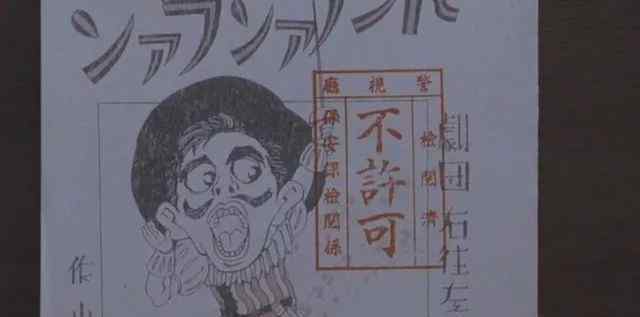 ファンファン
劇団 右往左
警視廳
檢閲濟
不許可
保安課檢閲係
作